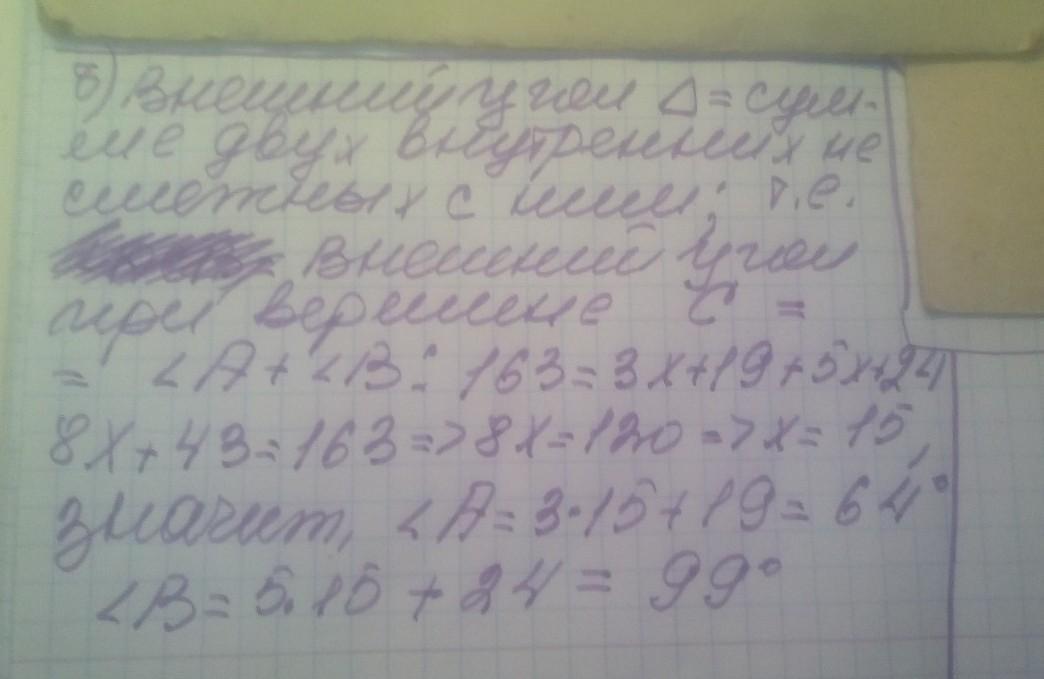 б) Внешний угол △ = сум-
ме двух внутренних не
смежных с ним; т.е.
Внешний угол
при вершине C =
= ∠A + ∠B: 163 = 3x+19+5x+24
8x+43=163=>8x=120=>x=15,
значит, ∠A=3·15+19=64°
∠B=5·15+24=99°